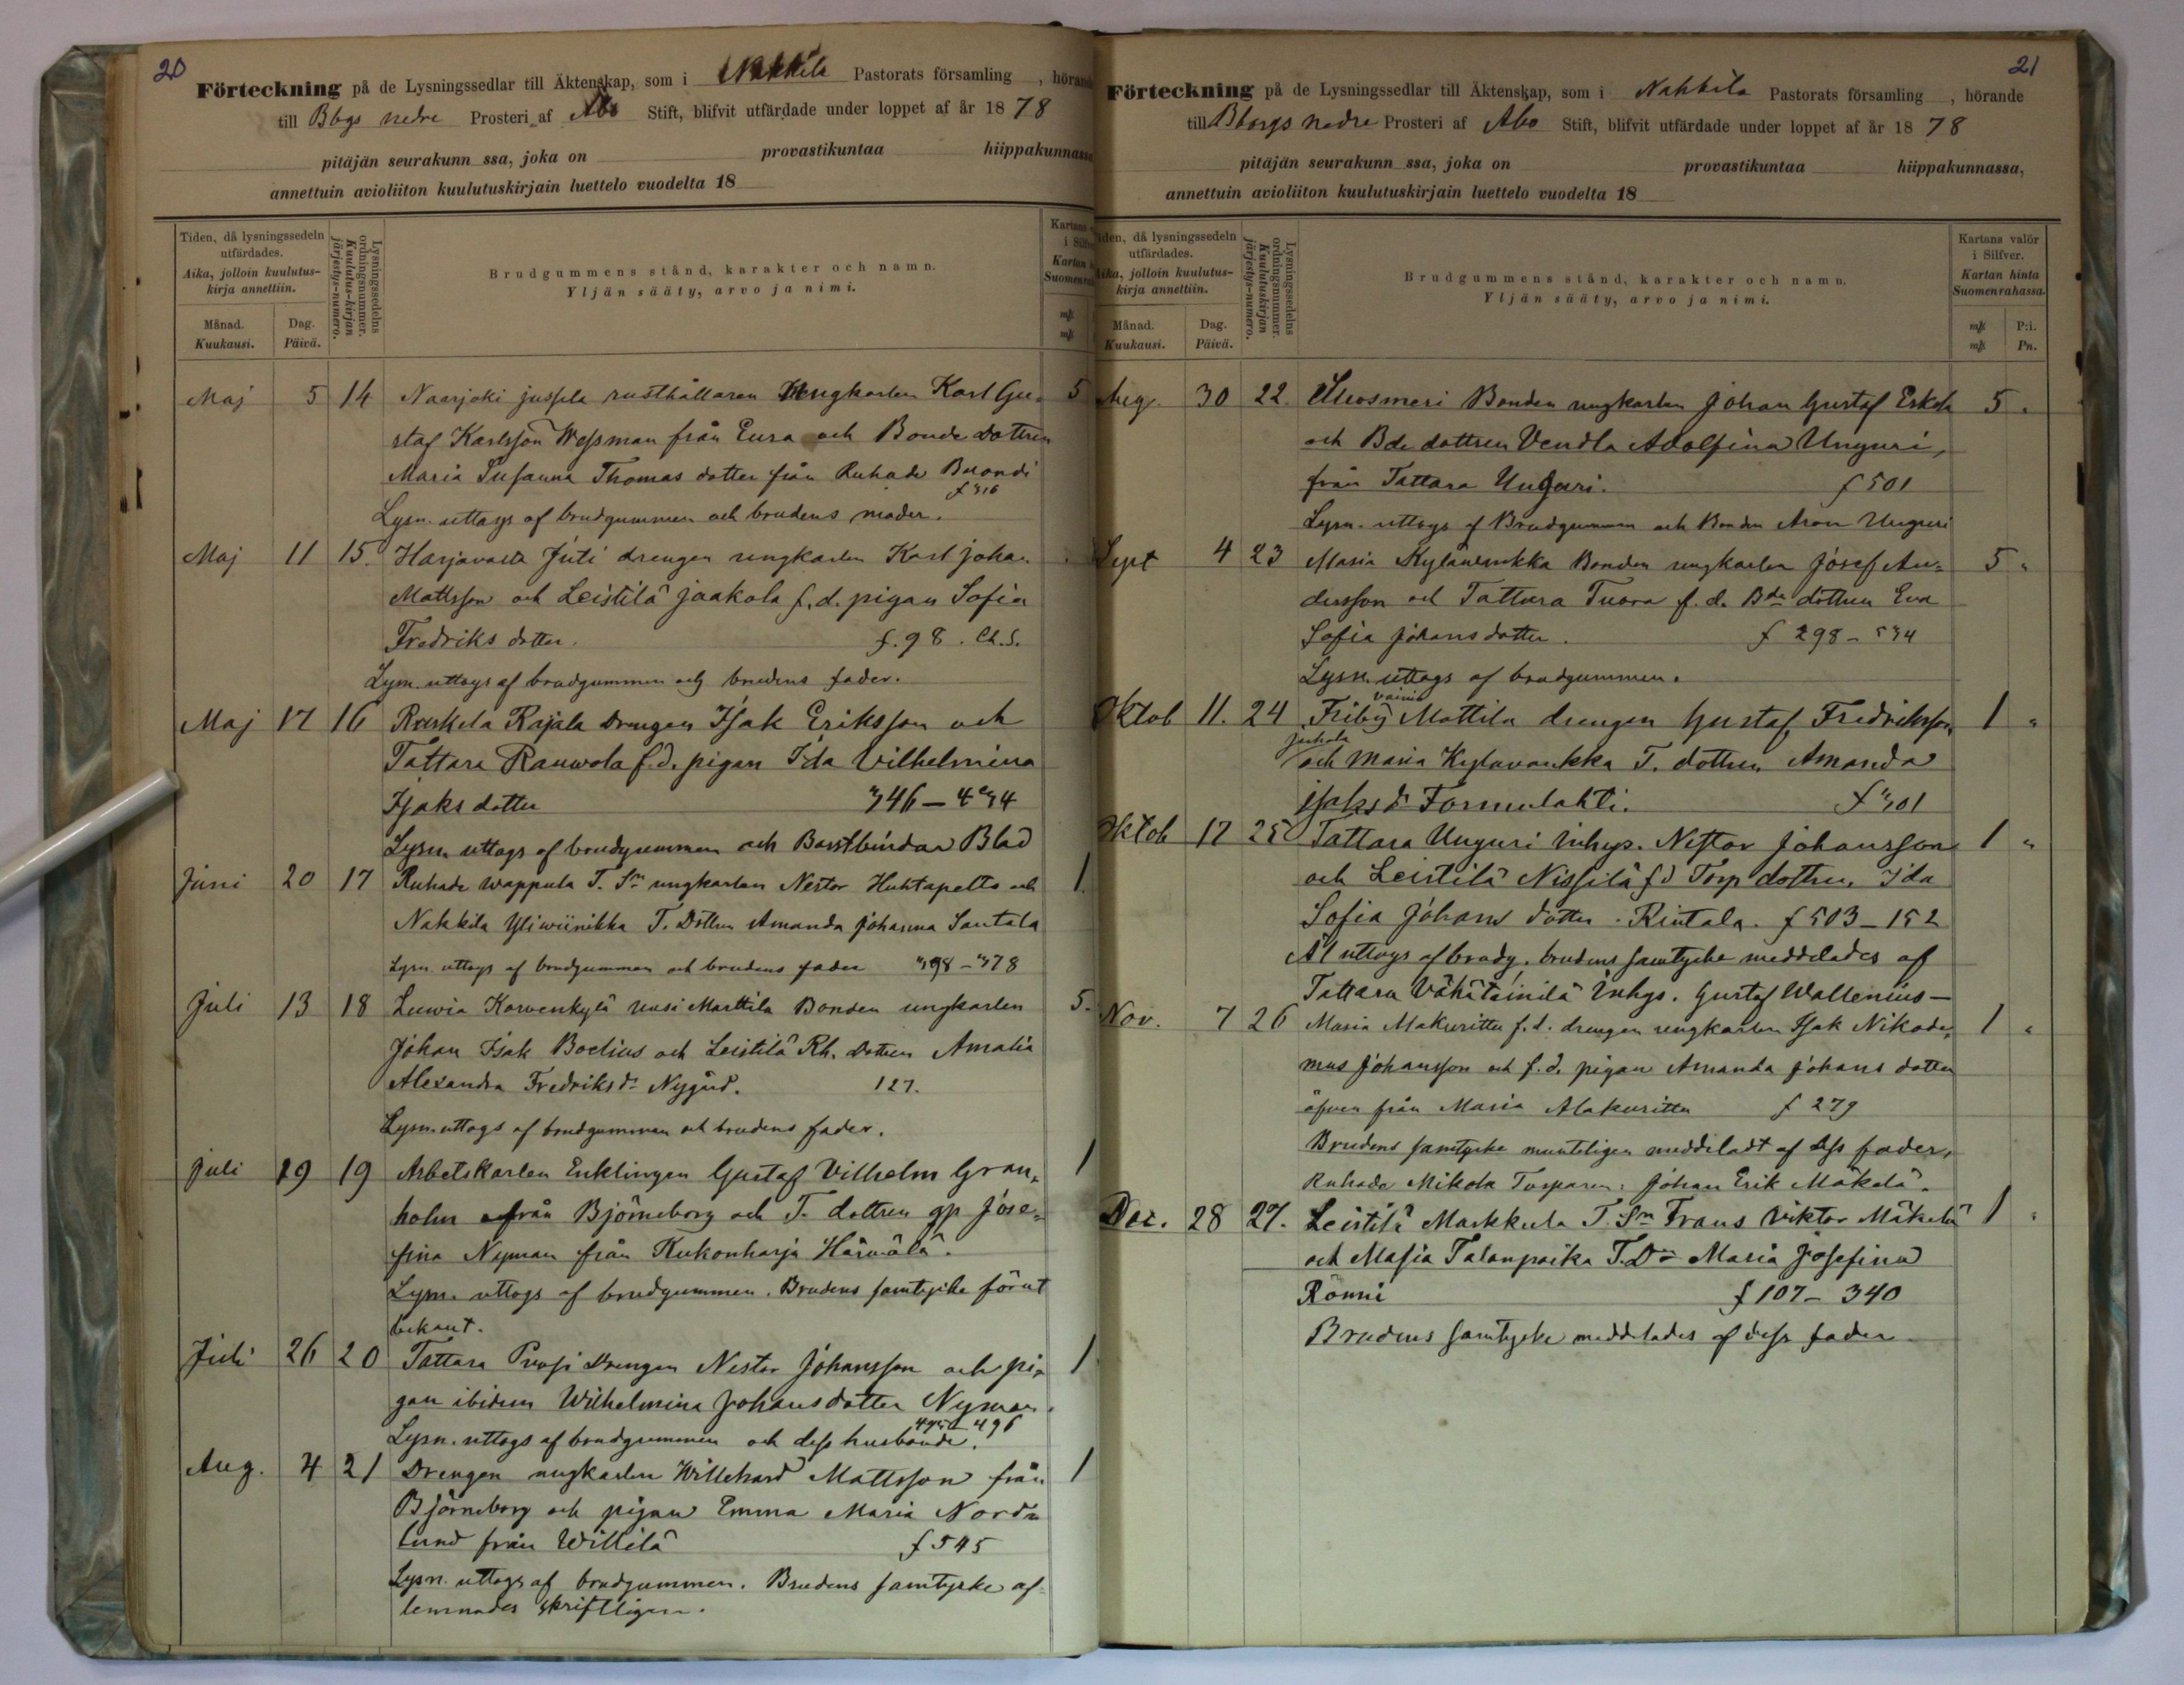 20
Förteckning på de Lysningssedlar till Äktenskap, som i Nakkila Pastorats församling , hörande
till Bbgs nedre Prosteri af Åbo Stift, blifvit utfärdade under loppet af år 1878
pitäjän seurakunn ssa, joka on provastikuntaa hiippakunnassa
annettuin avioliiton kuulutuskirjain luettelo vuodelta 18
Tiden, då lysningssedeln utfärdades.
Aika, jolloin kuulutus-kirja annettiin.
Månad. Kuukausi.
Dag. Päivä.
Lysningssedelns ordningsnummer.
Kuulutus-kirjan järjestys-numero.
Brudgummens stånd, karakter och namn.
Yljän sääty, arvo ja nimi.
Kartans
i Silfv
Kartan
Suomen
mk
mk
Maj 5 14 Naarjoki jussila rusthållaren ungkarlen Karl Gu- 5
staf Karlsson Wessman från Eura och Bonde dottren
Maria Susanna Thomas dotter från Ruhade
Lysn. uttogs af brudgummen och brudens moder.
Maj 11 15. Harjavalta Juti drengen ungkarlen Karl Johan
Mattsson och Leistilä Jaakola f.d. pigan Sofia
Fredriks dotter. f. 98.
Lysn. uttogs af brudgummen och brudens fader.
Maj 17 16 Ruskela Rajala Drengen Isak Eriksson och
Tattara Rauwola f.d. pigan Ida Vilhelmina
Isaks dotter
Lysn. uttogs af brudgummen och Borstbindar Blad
Juni 20 17 Ruhade Wappula T. Sn ungkarlen Nestor Huhtapelto och 1.
Nakkila Yliwiinikka T. Dottren Amanda Johanna Santala
Lysn. uttogs af brudgummen och brudens fader
Juli 13 18 Luwia Korwenkylä uusi Marttila Bonden ungkarlen 5.
Johan Isak Boelius och Leistilä Rh. Dottren Amalia
Alexandra Fredriksdr Nygård. 127.
Lysn. uttogs af brudgummen och brudens fader.
Juli 19 19 Arbetskarlen Enklingen Gustaf Vilhelm Gran- 1
holm från Björneborg och T. dottren Jose-
fina Nyman från Kukonharja Härmälä.
Lysn. uttogs af brudgummen. Brudens samtycke förut
bekant.
Juli 26 20 Tattara Prusi Drengen Nestor Johansson och pi- 1
gan ibidem Wilhelmina Johansdotter Nyman.
Lysn. uttogs af brudgummen och dess husbonde. 496
Aug. 4 21 Drengen ungkarlen Willehard Mattsson från 1
Björneborg och pigan Emma Maria Nord-
lund från Willilä f 545
Lysn. uttogs af brudgummen. Brudens samtycke af-
lemnades skriftligen.
21
Förteckning på de Lysningssedlar till Äktenskap, som i Nakkila Pastorats församling , hörande
till Bborgs nedre Prosteri af Åbo Stift, blifvit utfärdade under loppet af år 1878
pitäjän seurakunn ssa, joka on provastikuntaa hiippakunnassa,
annettuin avioliiton kuulutuskirjain luettelo vuodelta 18
den, då lysningssedeln utfärdades.
Aika, jolloin kuulutus-kirja annettiin.
Månad. Kuukausi.
Dag. Päivä.
Lysningssedelns ordningsnummer.
Kuulutuskirjan järjestys-numero.
Brudgummens stånd, karakter och namn.
Yljän sääty, arvo ja nimi.
Kartans valör i Silfver.
Kartan hinta Suomenrahassa.
mk P:i.
mk Pn.
Aug. 30 22. Suosmeri Bonden ungkarlen Johan Gustaf Eskola 5 .
och Bde dottren Vendla Adolfina Unguri,
från Tattara Unguri. f 501
Lysn. uttogs af Brudgummen och Bonden Aron Unguri
Sept 4 23 Masia Kylänwankka Bonden ungkarlen Josef An- 5 "
dersson och Tattara Tuora f.d. Bde dottren Eva
Sofia Johans dotter. f 298 - 534
Lysn. uttogs af brudgummen.
Oktob 11. 24 Friby Mattila drengen Gustaf Fredriksson, 1 "
och Masia Kylavankka T. dottren Amanda
Isaksdr Formulahti.
Oktob 17 25 Tattara Unguri inhys. Nestor Johansson 1 "
och Leistilä Nissilä f.d Torp dottren, Ida
Sofia Johans dotter. Rintala. f 503 - 152
Äl uttogs af brudg. brudens samtycke meddelades af
Tattara Vähätäinilä inhys. Gustaf Wallenius -
Nov. 7 26 Masia Makuritta f.d. drengen ungkarlen Isak Nikode- 1 "
mus Johansson och f.d. pigan Amanda Johans dotter
äfven från Masia Alakuritta f 279
Brudens samtycke muntligen meddeladt af dess fader,
Ruhade Mikola Torparen: Johan Erik Mäkelä.
Dec. 28 27. Leistilä Markkula T. Sn Frans Viktor Mäkelä 1 "
och Masia Talanpoika T.Dr Maria Josefina
Römni f 107 - 340
Brudens samtycke meddelades af dess fader.